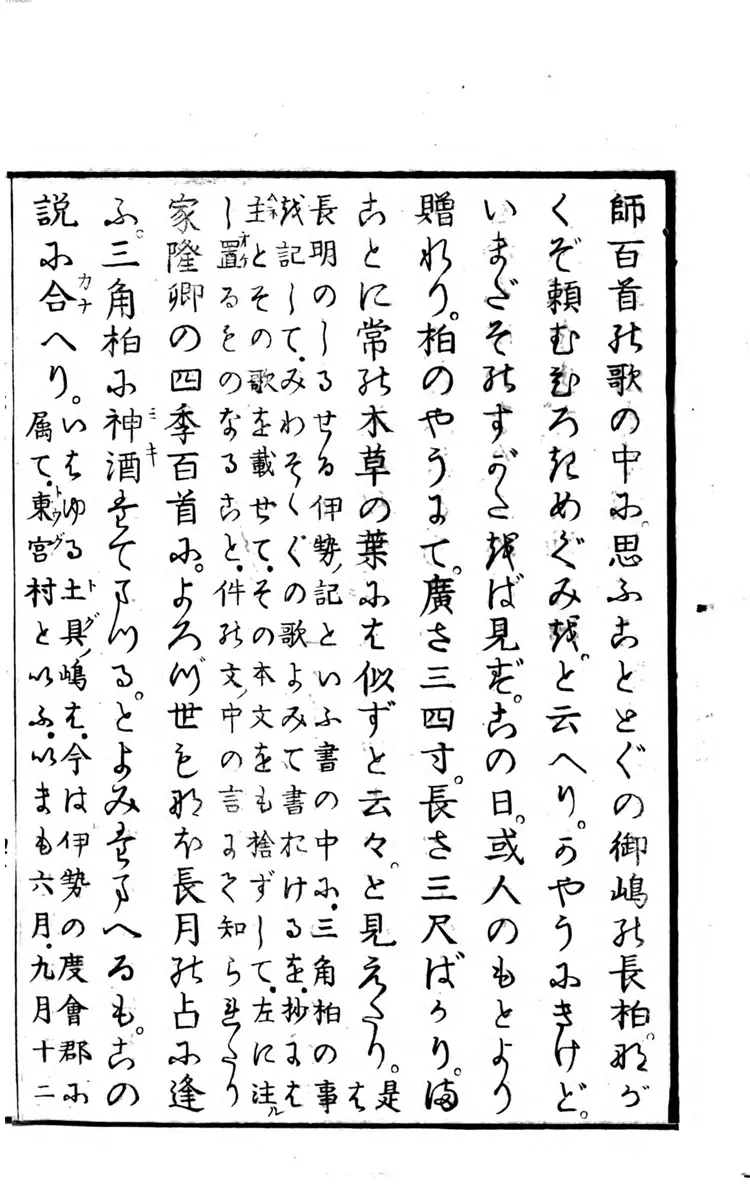 師百首の歌の中に。思ふこととぐの御嶋の長柏。なが
くぞ頼むひろきめぐみを。と云へり。かやうにきけど。
いまだそのすがたをば見ず。この日。或人のもとより
贈れり。柏のやうにて。廣さ三四寸。長さ三尺ばかり。ま
ことに常の木草の葉にも似ずと云々。と見えたり。是は
長明のしるせる伊勢ノ記といふ書の中に、三角柏の事
を記して、みわそくぐの歌よみて書おけるを、抄には
主とその歌を載せて、その本文をも捨ずして、左に注ル
し置るものなること、件の文ノ中の言にて知られたり
家隆卿の四季百首に。よろづ世もなほ長月の占に逢
ふ。三角柏に神酒ミキたてまつる。とよみたまへるも。この
説に合カナへり。いはゆる土具トグノ嶋は、今は伊勢の度會郡に
属て、東宮トウグ村といふ、いまも六月、九月十二